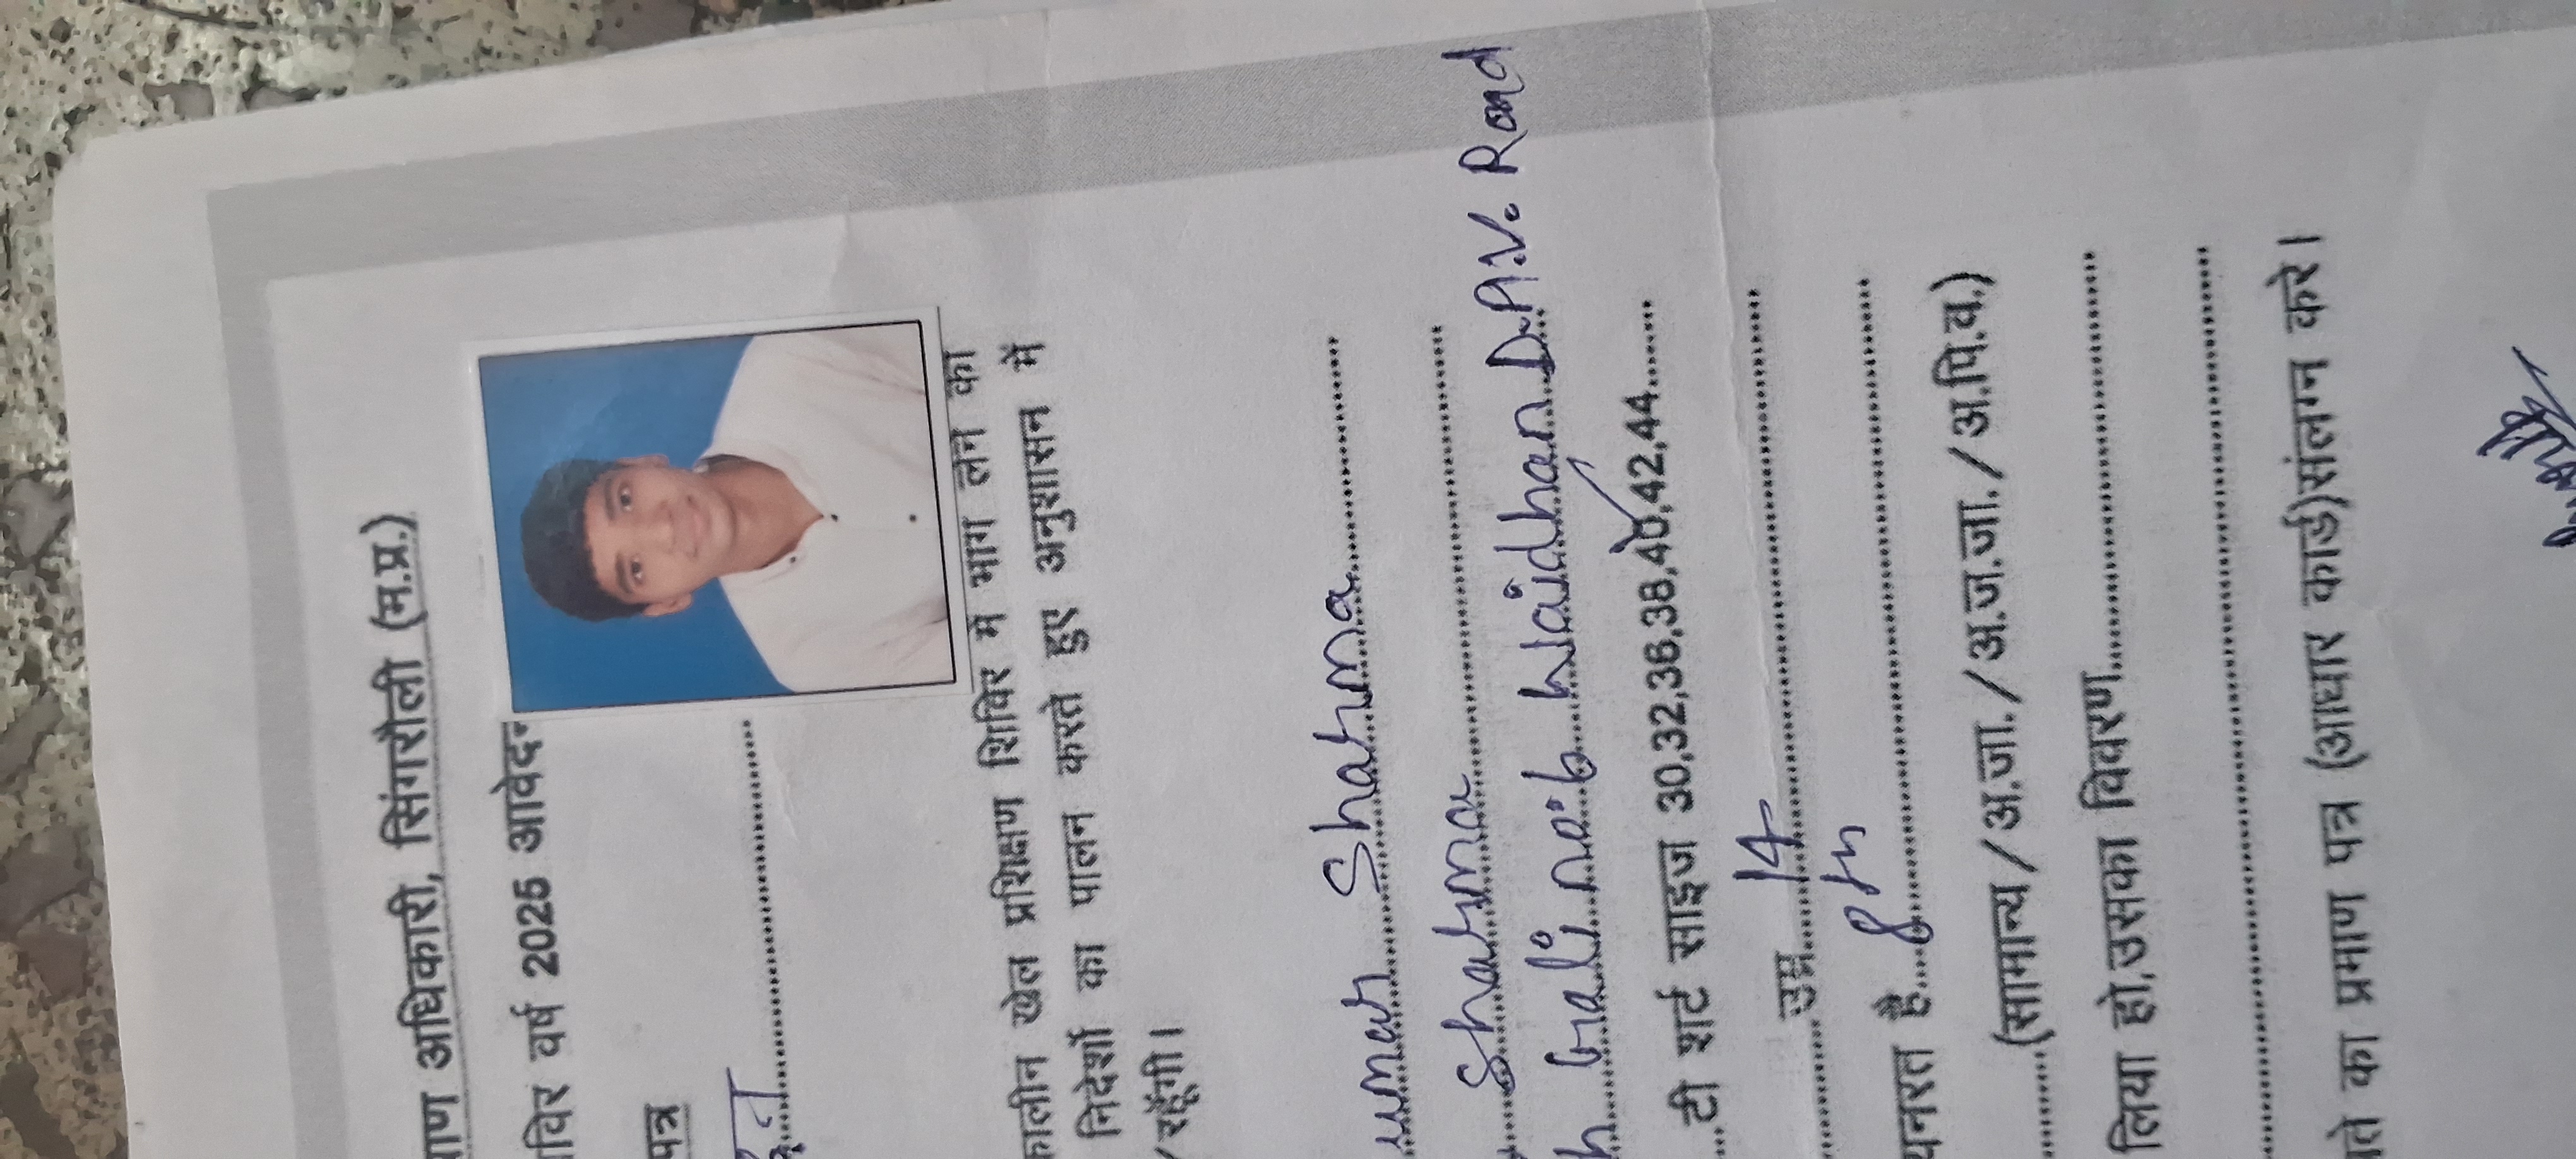 अधिकारी, सिंगरौली (म.प्र.)
वर्ष 2025 आवेदन
पत्र
खेल प्रशिक्षण शिविर में भाग लेने का
निर्देशों का पालन करते हुए अनुशासन में
/ रहूँगी।
Sharma
Sharma
Gali no:6 Waidhan D.A.V. Road
टी शर्ट साइज 30,32,36,38,40,42,44
उम्र 14
है 8th
(सामान्य / अ.जा. / अ.ज.जा. / अ.पि.व.)
लिया हो,उसका विवरण
का प्रमाण पत्र (आधार कार्ड)संलग्न करे।